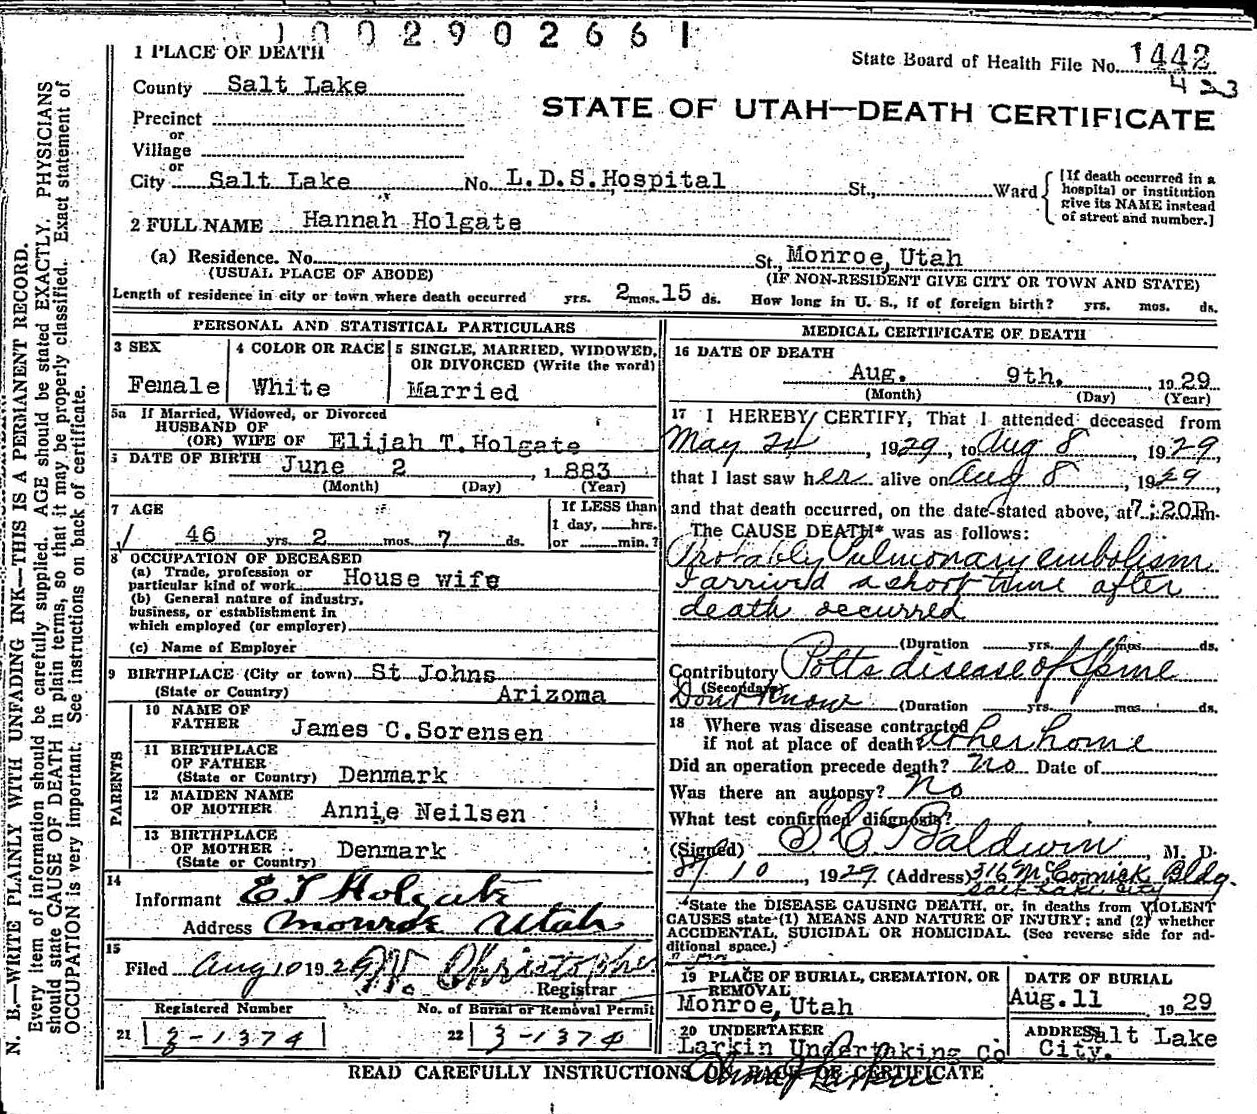 1002902661
State Board of Health File No. 1442
423
1 PLACE OF DEATH
County Salt Lake
STATE OF UTAH—DEATH CERTIFICATE
Precinct
or
Village
or
City Salt Lake No. L.D.S. Hospital St., Ward
[If death occurred in a hospital or institution give its NAME instead of street and number.]
2 FULL NAME Hannah Holgate
(a) Residence. No. St., Monroe, Utah
(USUAL PLACE OF ABODE) (IF NON-RESIDENT GIVE CITY OR TOWN AND STATE)
Length of residence in city or town where death occurred yrs. 2 mos. 15 ds. How long in U. S., if of foreign birth? yrs. mos. ds.
PERSONAL AND STATISTICAL PARTICULARS
3 SEX
Female
4 COLOR OR RACE
White
5 SINGLE, MARRIED, WIDOWED, OR DIVORCED (Write the word)
Married
5a If Married, Widowed, or Divorced
HUSBAND OF
(OR) WIFE OF Elijah T. Holgate
DATE OF BIRTH June 2, 1883
(Month) (Day) (Year)
7 AGE
46 yrs. 2 mos. 7 ds.
If LESS than
1 day, hrs.
or min.?
8 OCCUPATION OF DECEASED
(a) Trade, profession or
particular kind of work House wife
(b) General nature of industry,
business, or establishment in
which employed (or employer)
(c) Name of Employer
9 BIRTHPLACE (City or town) St Johns
(State or Country) Arizoma
PARENTS
10 NAME OF
FATHER James C. Sorensen
11 BIRTHPLACE
OF FATHER
(State or Country) Denmark
12 MAIDEN NAME
OF MOTHER Annie Neilsen
13 BIRTHPLACE
OF MOTHER
(State or Country) Denmark
14
Informant E T Holgate
Address Monroe Utah
15
Filed Aug 10 1929 Christopher
Registrar
Registered Number
21 3-1374
No. of Burial or Removal Permit
22 3-1374
MEDICAL CERTIFICATE OF DEATH
16 DATE OF DEATH
Aug. 9th, 1929
(Month) (Day) (Year)
17 I HEREBY CERTIFY, That I attended deceased from
May 24, 1929, to Aug 8, 1929,
that I last saw her alive on Aug 8, 1929,
and that death occurred, on the date stated above, at 7:20P.m.
The CAUSE DEATH* was as follows:
Probably Pulmonary embolism
I arrived a short time after
death occurred
(Duration yrs. mos. ds.
Contributory Potts disease of Spine
(Secondary)
Dont Know (Duration yrs. mos. ds.
18 Where was disease contracted
if not at place of death? at her home
Did an operation precede death? no Date of
Was there an autopsy? No
What test confirmed diagnosis?
(Signed) S C Baldwin, M. D.
8/10, 1929 (Address) 316 McCornick Bldg.
Salt Lake City
*State the DISEASE CAUSING DEATH, or, in deaths from VIOLENT
CAUSES state (1) MEANS AND NATURE OF INJURY; and (2) whether
ACCIDENTAL, SUICIDAL OR HOMICIDAL. (See reverse side for ad-
ditional space.)
19 PLACE OF BURIAL, CREMATION, OR
REMOVAL
Monroe, Utah
DATE OF BURIAL
Aug. 11 1929
20 UNDERTAKER
Larkin Undertaking Co
ADDRESS Salt Lake
City.
READ CAREFULLY INSTRUCTIONS ON BACK OF CERTIFICATE
N. B.—WRITE PLAINLY WITH UNFADING INK—THIS IS A PERMANENT RECORD.
Every item of information should be carefully supplied. AGE should be stated EXACTLY. PHYSICIANS
should state CAUSE OF DEATH in plain terms, so that it may be properly classified. Exact statement of
OCCUPATION is very important. See instructions on back of certificate.